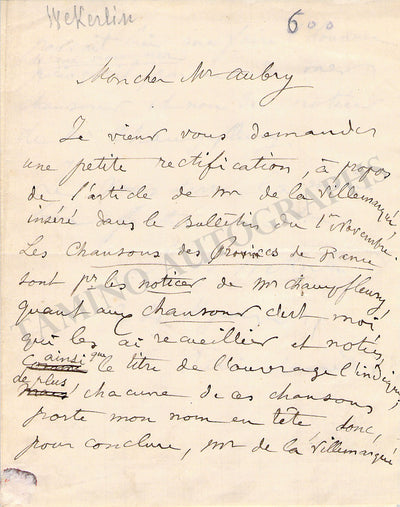 Wekerlin
600
Mon cher Mr Aubry
Je viens vous demander
une petite rectification, à propos
de l'article de Mr de la Villemarqué,
inséré dans le Bulletin du 1er Novembre.
Les Chansons des Provinces de France
sont pr les notices de Mr Champfleury
quant aux chansons c'est moi
qui les ai recueillies et notées,
ainsi que le titre de l'ouvrage l'indique;
de plus chacune de ces chansons
porte mon nom en tête, donc,
pour conclure, Mr de la Villemarqué
TAMINO AUTOGRAPHS